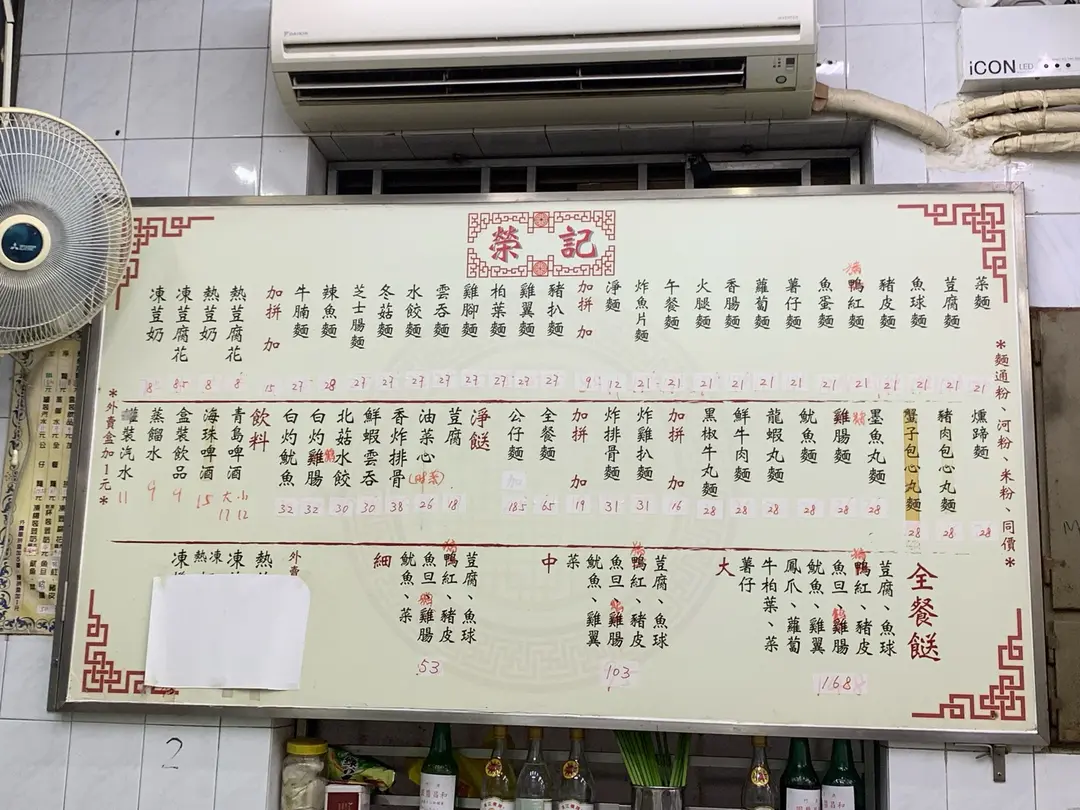 榮記
＊麵通粉、河粉、米粉、同價＊
菜麵 21
荳腐麵 21
魚球麵 21
豬皮麵 21
豬鴨紅麵 21
魚蛋麵 21
薯仔麵 21
蘿蔔麵 21
香腸麵 21
火腿麵 21
午餐麵 21
炸魚片麵 21
淨麵 12
加拼加 9
豬扒麵 27
雞翼麵 27
柏葉麵 27
雞腳麵 27
雲吞麵 27
水餃麵 27
冬菇麵 27
芝士腸麵 27
辣魚麵 28
牛腩麵 27
加拼加 15
熱荳腐花 8
熱荳奶 8
凍荳腐花 8.5
凍荳奶 8
燻蹄麵 28
豬肉包心丸麵 28
蟹子包心丸麵 28
墨魚丸麵 28
雞腸麵 28
魷魚麵 28
龍蝦丸麵 28
鮮牛肉麵 28
黑椒牛丸麵 28
加拼加 19
炸雞扒麵 31
炸排骨麵 31
加拼加 19
全餐麵 65
公仔麵 加 18.5
淨餸
荳腐 18
油菜心(時菜) 26
香炸排骨 38
鮮蝦雲吞 30
北菇水餃 30
白灼雞腸 32
白灼魷魚 32
飲料
青島啤酒 大17 小12
海珠啤酒 15
盒裝飲品 9
蒸餾水 9
罐裝汽水 11
＊外賣盒加1元＊
全餐餸
荳腐、魚球
豬鴨紅、豬皮
魚旦、雞腸
魷魚、雞翼
鳳爪、蘿蔔
牛柏葉、菜
薯仔
大
168
荳腐、魚球
豬鴨紅、豬皮
魚旦、雞腸
魷魚、雞翼
菜
中
103
荳腐、魚球
豬鴨紅、豬皮
魚旦、雞腸
魷魚、菜
細
53
外賣
熱
凍
熱
凍
iCON LED
DAIKIN
2